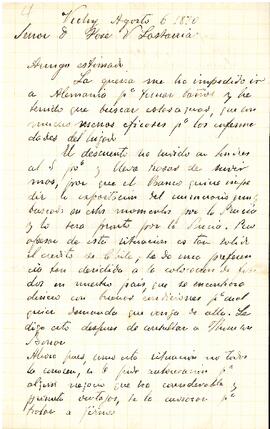 Vichy Agosto 6 1870
Señor D José V Lastarria
Amigo estimado
La guerra me ha impedido ir
a Alemania pª tomar baños y he
tenido que buscar estas aguas, que son
mucho menos eficaces pª las enferme
dades del hígado
El descuento ha subido en Londres
al 5 p% y
por que el Banco quiere impe
dir la esportacion del numerario que
buscado en estos momentos por la
y lo sera pronto por la Prusia. Pero
apesar de esta situacion es tan solido
el credito de Chile, y de una preferen
cia tan decidida a la colocacion de fon
dos en nuestro pais, que se encontrara
dinero con buenas condiciones pª cual
quier demanda que venga de alla. Le
digo esto despues de consultar a Thomson
Bonar
Ahora pues como esta situacion no todos
la conocen, si le pido autorizacion pª
algun negocio que sea considerable y
presente ventajas, se la
tratar a firme